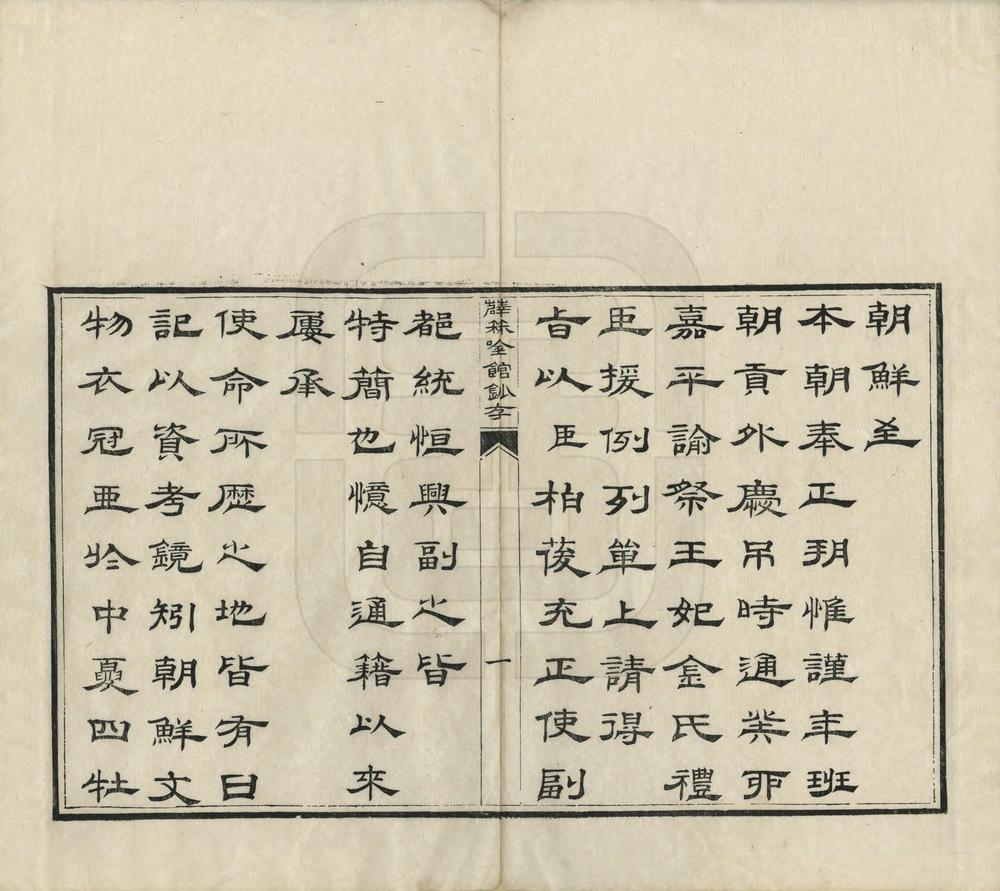 朝鮮至
本朝奉正朔惟謹年班
朝貢外慶吊時通癸卯
嘉平諭祭王妃金氏禮
臣援例列單上請得
旨以臣柏葰充正使副
薜箖吟館鈔存
一
都統恒興副之皆
特簡也憶自通籍以來
屢承
使命所歷之地皆有日
記以資考鏡矧朝鮮文
物衣冠亞於中夏四牡